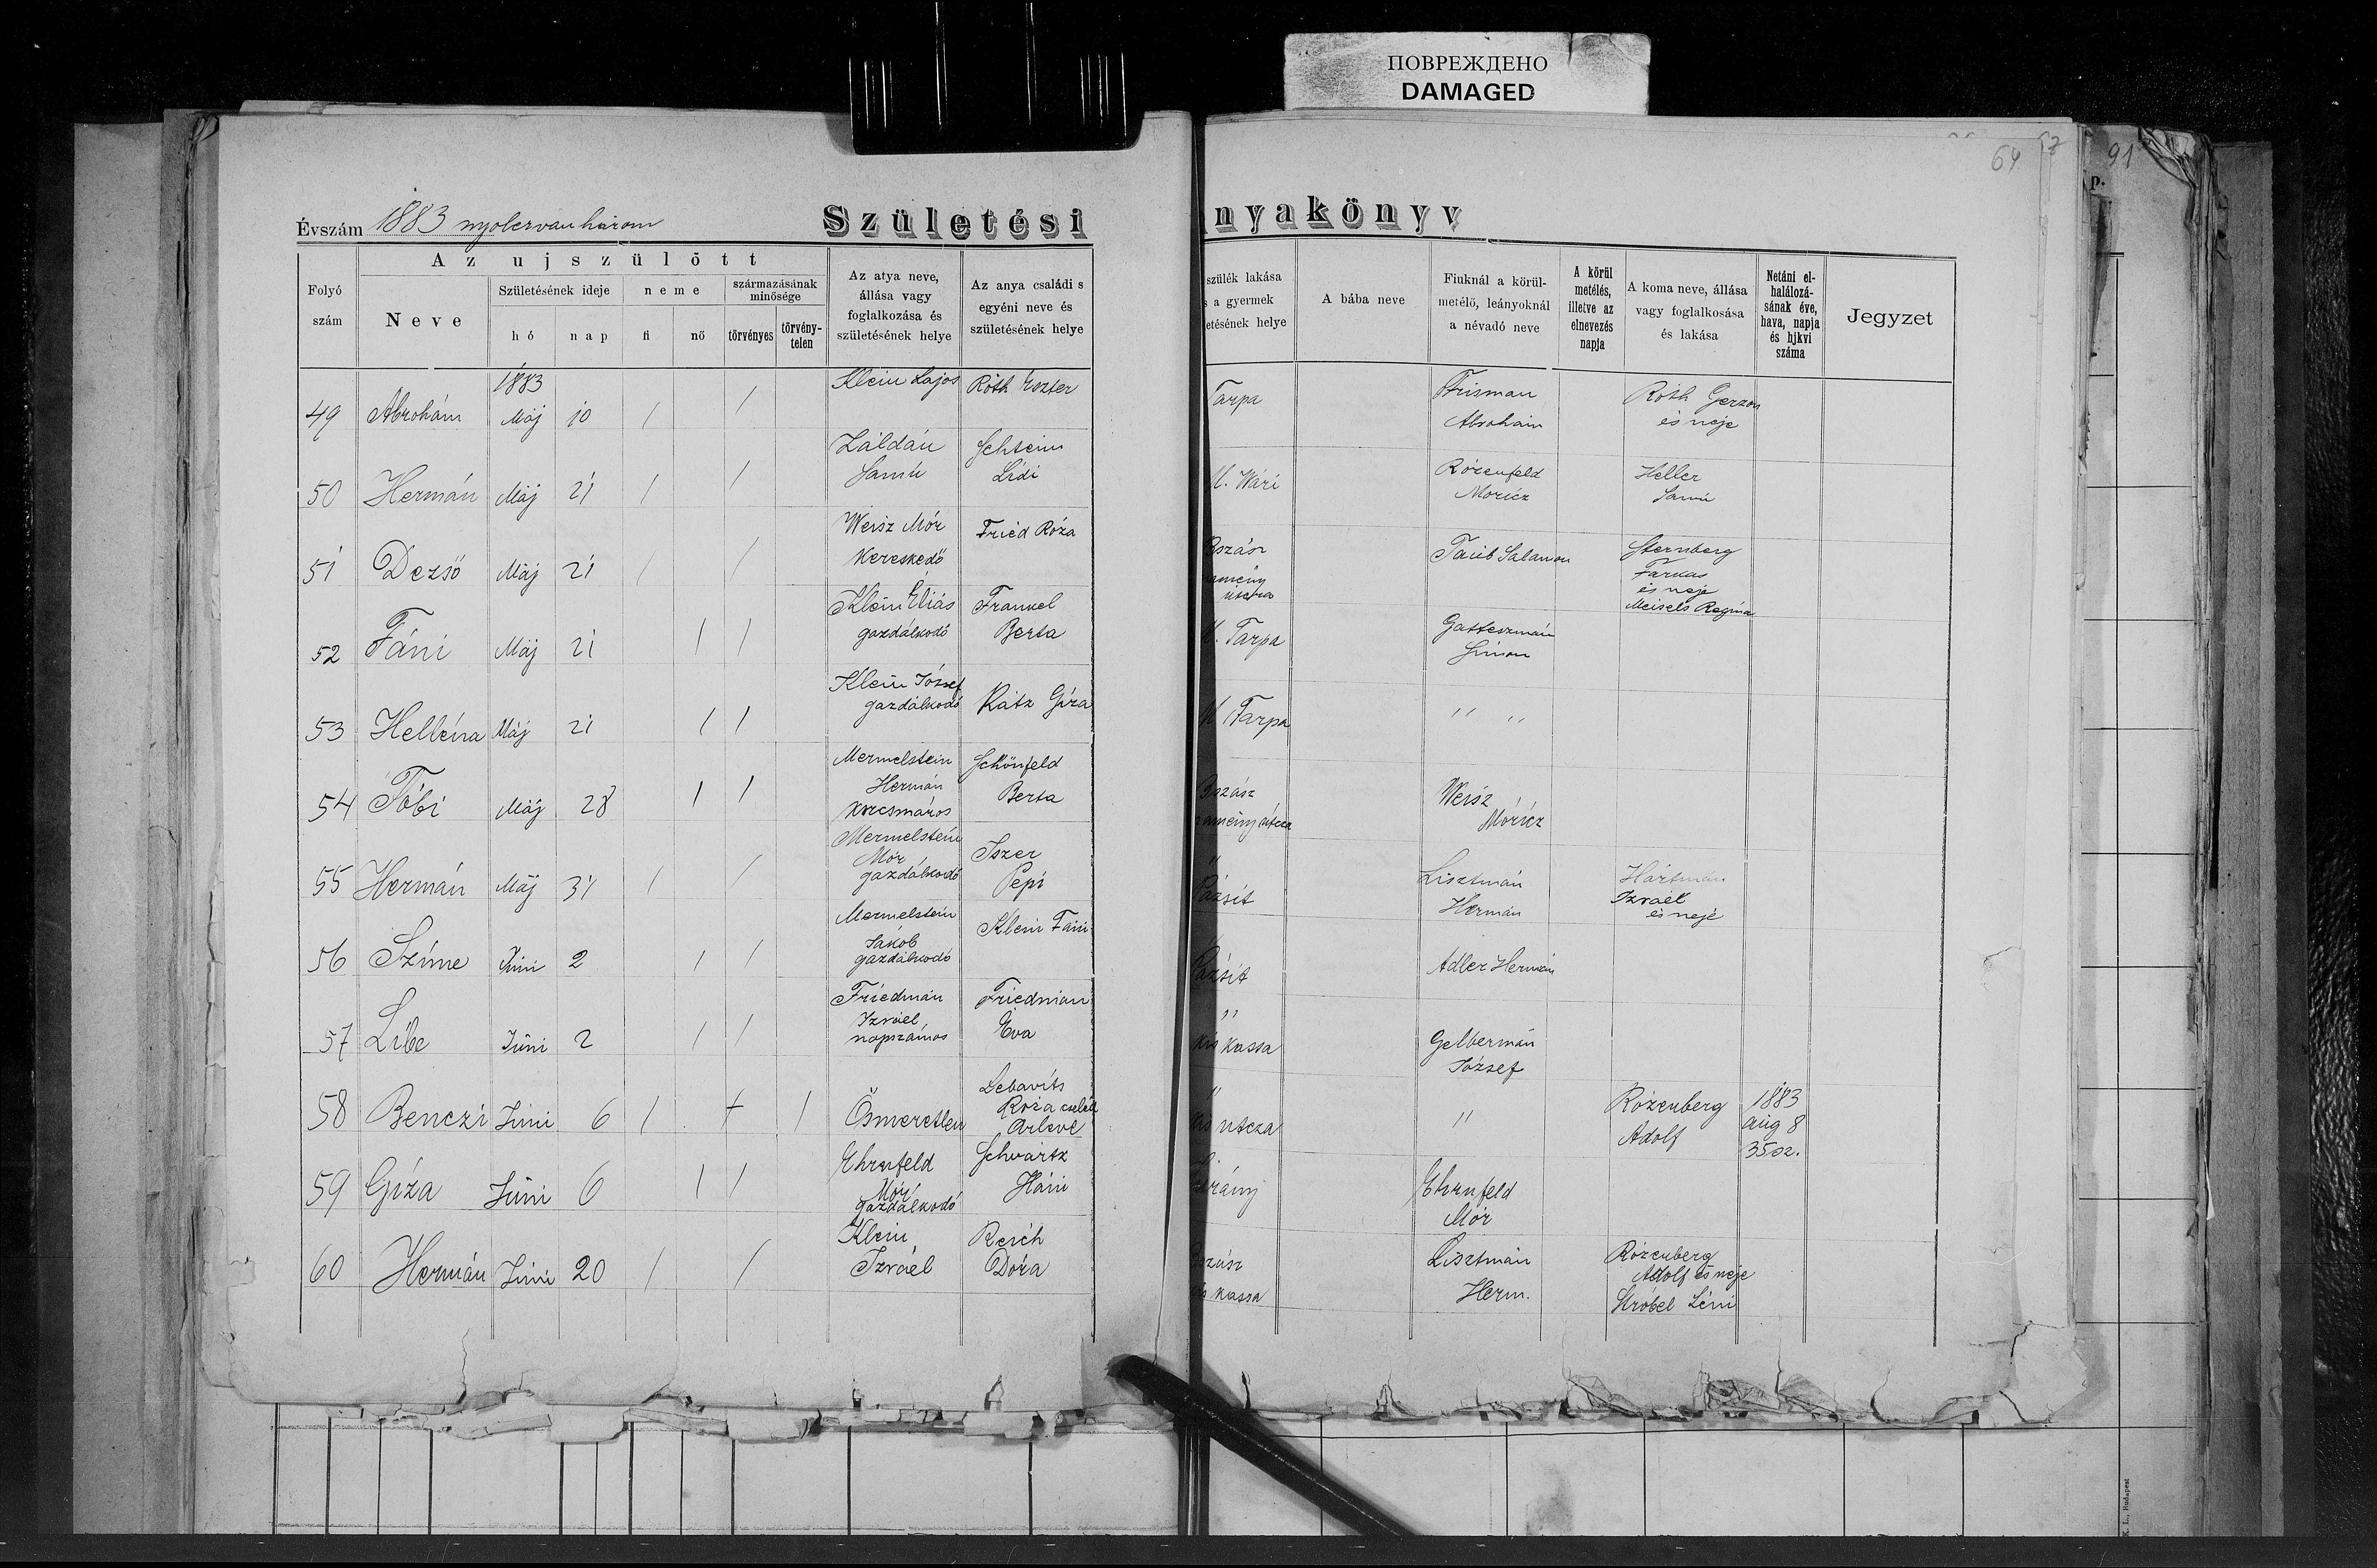 ПОВРЕЖДЕНО
DAMAGED
64
91
p.
Évszám 1883 nyolczvanhárom
Születési
nyakönyv
Az ujszülött
Folyó szám
Neve
Születésének ideje
hó
nap
neme
fi
nö
származásának minősége
törvényes
törvény-telen
Az atya neve, állása vagy foglalkozása és születésének helye
Az anya családi s egyéni neve és születésének helye
szülék lakása
s a gyermek
etésének helye
A bába neve
Fiuknál a körül-metélő, leányoknál a névadó neve
A körül metélés, illetve az elnevezés napja
A koma neve, állása vagy foglalkosása és lakása
Netáni el-halálozá-sának éve, hava, napja és hjkvi száma
Jegyzet
1883
49 Abrohám Máj 10 / / Klein Lajos Róth Eszter Tarpa Frisman Abrohám Róth Gerzon és neje
50 Hermán Máj 21 / / Záldán Samú Schtein Lidi M. Wári Rózenfeld Moricz Heller Samú
51 Dezső Máj 21 / / Weisz Mór Kereskedő Fried Róza Bszász namény útcza Taub Salamon Sternberg Farkas és neje Meisels Regina
52 Fáni Máj 21 / / Klein Éliás gazdálkodó Frankel Berta M. Tarpa Gotteszmán Simon
53 Helléna Máj 21 / / Klein József gazdálkodó Kátz Giza M Tarpa " "
54 Tóbi Máj 28 / / Mermelstein Hermán korcsmáros Schönfeld Berta Bszász namény útcza Weisz Móricz
55 Hermán Máj 31 / / Mermelstein Mór gazdálkodó Iszer Pepi " Pázsit Lisztmán Hermán Hártmán Izráel és neje
56 Szime Júni 2 / / Mermelstein Jákob gazdálkodó Klein Fáni Pázsit Adler Hermán
57 Libe Júni 2 / / Friedmán Izráel napszámos Friedman Éva " kis kassa Gelbermán József
58 Benczi Júni 6 / + / Ösmeretlen Lebavits Róza cseléd " kis utcza " Rózenberg Adolf 1883 aug 8 35 sz.
59 Giza Júni 6 / / Ehrnfeld Mór gazdálkodó Schvartz Háni Ehrnfeld Mór
60 Hermán Júni 20 / / Klein Izráel Reich Dóra Bszász kis kassa Lisztmán Herm. Rózenberg Adolf és neje Ströbel Léni
K. L., Budapest